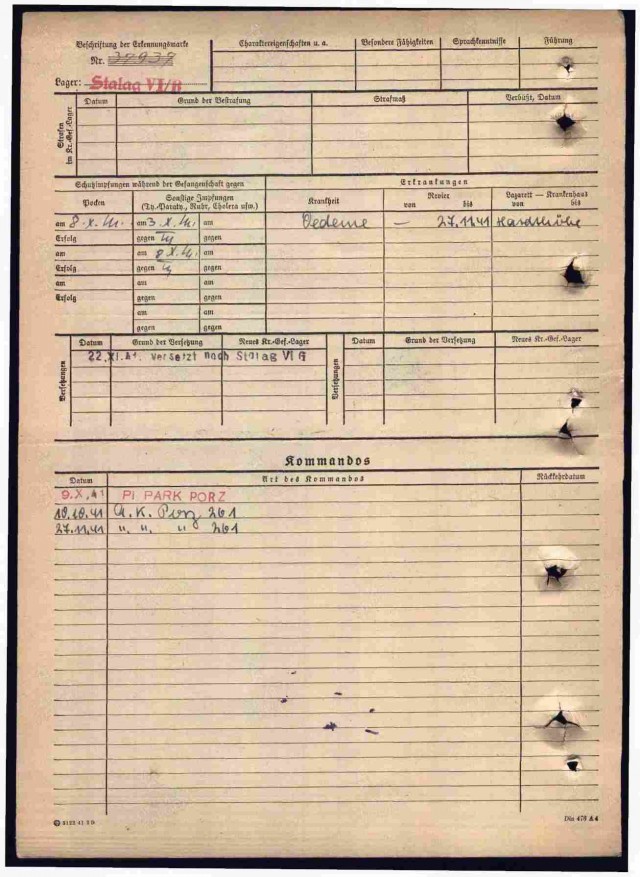 Beschriftung der Erkennungsmarke
Nr. 37937
Lager: Stalag VI/B
Charaktereigenschaften u. a.
Besondere Fähigkeiten
Sprachkenntnisse
Führung
Strafen im Kr.-Gef.-Lager
Datum
Grund der Bestrafung
Strafmaß
Verbüßt, Datum
Schutzimpfungen während der Gefangenschaft gegen
Erkrankungen
Pocken
Sonstige Impfungen
(Ty.-Paraty., Ruhr, Cholera usw.)
Krankheit
Revier
von bis
Lazarett — Krankenhaus
von bis
am 8.X.41. am 3.X.41. am
Oedeme — 27.11.41 Hardthöhe
Erfolg gegen Ty gegen
am am 8.X.41. am
Erfolg gegen Ty gegen
am am am
Erfolg gegen gegen
am am
gegen gegen
Versetzungen
Datum
Grund der Versetzung
Neues Kr.-Gef.-Lager
Versetzungen
Datum
Grund der Versetzung
Neues Kr.-Gef.-Lager
22.XI.41. versetzt nach Stalag VI G
Kommandos
Datum
Art des Kommandos
Rückkehrdatum
9.X.41 PI PARK PORZ
10.10.41 A.K. Porz 261
27.11.41 " " " 261
Din 476 A4